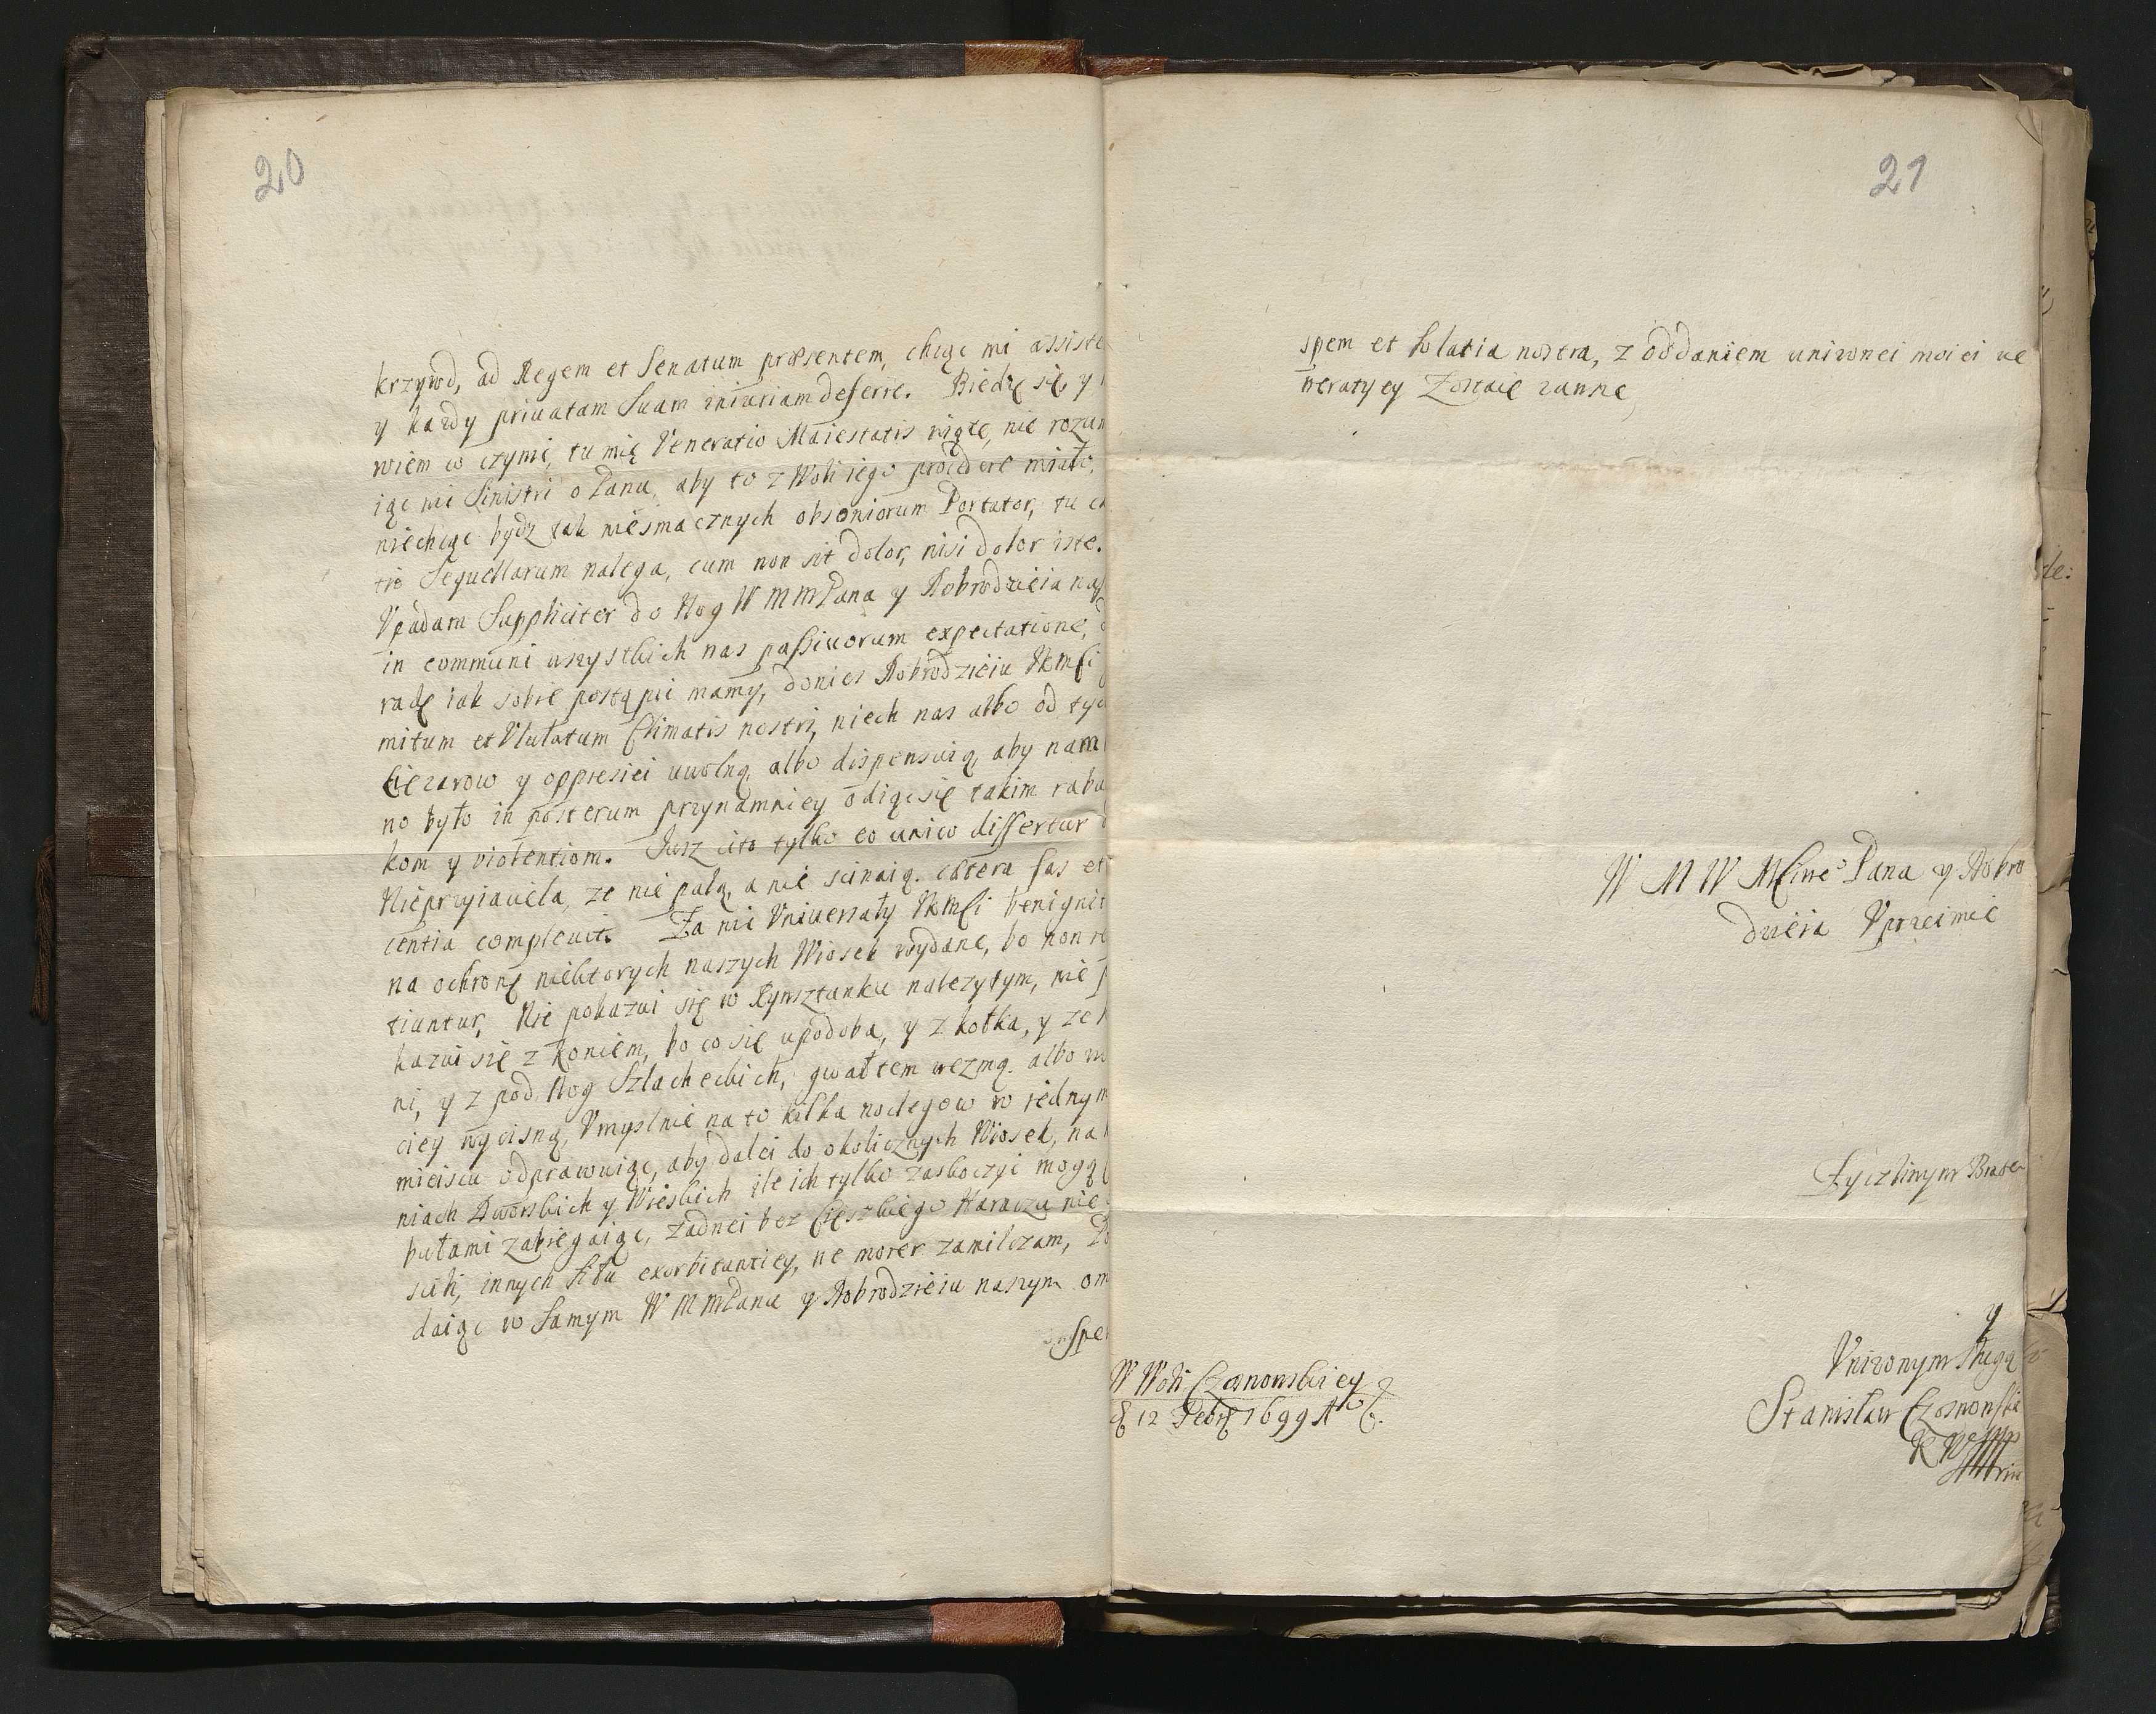 20
krzywd, ad Regem et Senatum præsentem, chcąc mi assiste
y kazdy priuatam Suam iniuriam deferre. Biedzę się, y
wiem co czynić, tu mię Veneratio Maiestatis wiąże, nie rozum
iąc nic Sinistri o Panu, aby to z Woli iego procedere miało,
niechcąc bydz tak niesmacznych obsoniorum Portator, tu
tio Sequellarum nalega, cum non sit dolor, nisi dolor iste.
Vpadam Suppliciter do Nog W M M Pana y Dobrodzieia nas
in communi wszystkich nas passiuorum expectatione,
radę iak sobie postąpić mamy, donieś Dobrodzieiu
mitum et Vlulatum Climatis nostri, niech nas albo od tyc
Ciezarow y oppresiei uwolnią, albo dispensuią, aby nam
no było in posterum przynamniey odiąc się takim rabu
kom y violentiom. Jusz ito tylko eo unico differtur
Nieprzyiaciela, ze nie palą, a nie scinaią. cætera fas et
centia compleuit. Za nic Vniuersały benignit
na ochronę niektorych naszych Wiosek wydane, bo non
tiuntur, Nie pokazui się w Rynsztunku nalezytym, nie
kazui się z koniem, bo co się upodoba, y z kołka, y ze
ni, y z pod Nog Szlacheckich, gwałtem wezmą. albo w
ciey wycisną, Vmyslnie na to kilka noclegow w iednym
mieiscu odprawuiąc, aby dalei do okolicznych Wiosek, na
niach Dworskich y Wieskich ile ich tylko zaskoczyć mogą
bułami zabiegaiąc, zadnei bez Cięszkiego Haraczu nie
scili, innych siła exorbitantiey, ne morer zamilczam,
daiąc w Samym W M M Panu y Dobrodzieiu naszym om
spe
21
spem et Solatia nostra, z oddaniem unizonei moiei ve
neratyey Zostaię zawsze
W M W MCiwe° Pana y Dobro
dzieia Vprzeimie
Zyczliwym Brate
y
Vnizonym Sługą
Stanisław Czosnowski
W Woli Czosnowskiey
d 12 Febr 1699 A